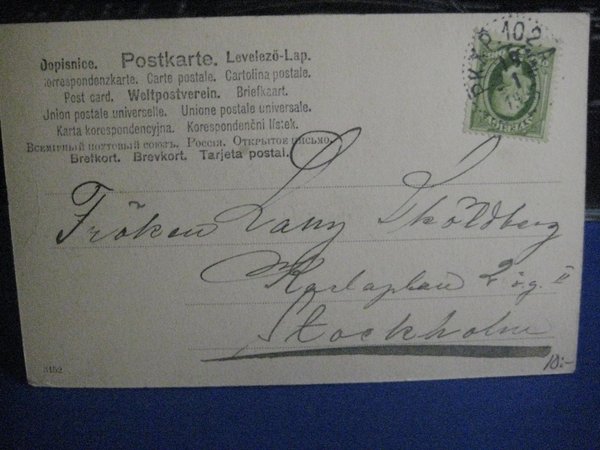 Dopisnice. Postkarte. Levelező-Lap.
Correspondenzkarte. Carte postale. Cartolina postale.
Post card. Weltpostverein. Briefkaart.
Union postale universelle. Unione postale universale.
Karta korespondencyjna. Korespondenční lístek.
Всемірный почтовый союзъ. Россія. Открытое письмо.
Brefkort. Brevkort. Tarjeta postal.
PKXP 102
Fröken Lany Sköldberg
Karlaplan 2 ög. II
Stockholm
3152
10:-